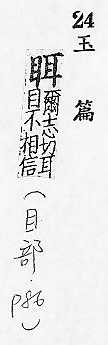 24 玉篇
眲
爾志切耳
目不相信
(目部.P86)